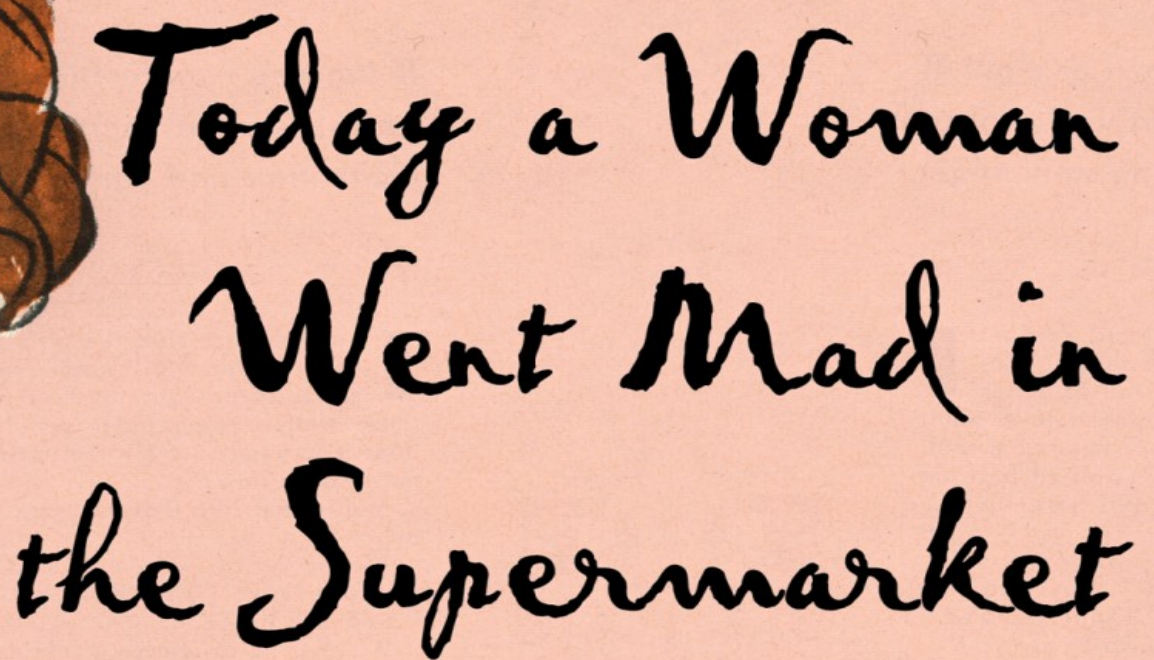 Today a Woman
Went Mad in
the Supermarket